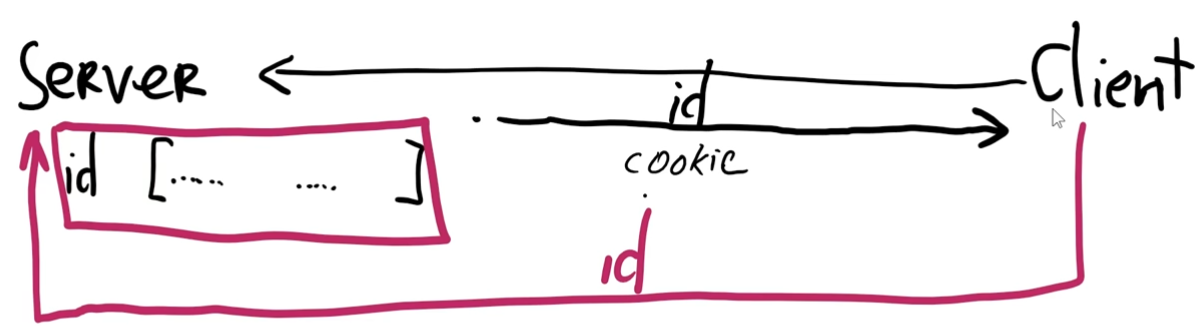 Server Client
id
cookie
id [...... .....]
id